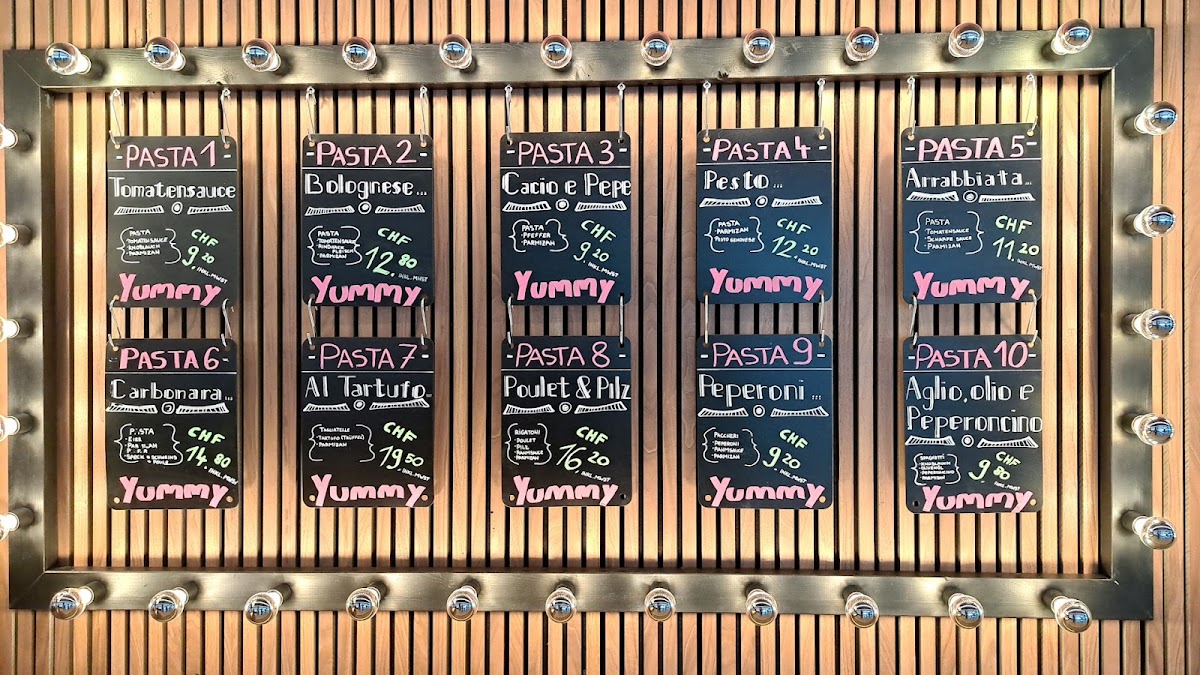 -PASTA 1-
Tomatensauce
PASTA
·TOMATENSAUCE
·KNOBLAUCH
·PARMIZAN
CHF
9.20
INKL. MWST
Yummy
-PASTA 2-
Bolognese...
PASTA
·TOMATENSAUCE
·RINDHACK
FLEISCH
·PARMIZAN
CHF
12.80
INKL. MWST
Yummy
-PASTA 3-
Cacio e Pepe
PASTA
·PFEFFER
·PARMIZAN
CHF
9.20
INKL. MWST
Yummy
-PASTA 4-
Pesto ...
PASTA
·PARMIZAN
·PESTO GENOVESE
CHF
12.20
INKL. MWST
Yummy
-PASTA 5-
Arrabbiata...
PASTA
TOMATENSAUCE
·SCHARFE SAUCE
·PARMIZAN
CHF
11.20
INKL. MWST
Yummy
-PASTA 6-
Carbonara...
PASTA
·EIER
CHF
14.80
INKL. MWST
Yummy
-PASTA 7-
Al Tartufo...
TAGLIATELLE
·TARTUFO (TRÜFFEL)
·PARMIZAN
CHF
19.50
INKL. MWST
Yummy
-PASTA 8-
Poulet & Pilz
RIGATONI
·POULET
·PILZ
·RAHMSAUCE
·PARMIZAN
CHF
16.20
INKL. MWST
Yummy
-PASTA 9-
Peperoni ...
PACCHERI
·PEPERONI
·RAHMSAUCE
·PARMIZAN
CHF
9.20
INKL. MWST
Yummy
-PASTA 10-
Aglio, olio e
Peperoncino
SPAGHETTI
·KNOBLAUCH
·OLIVENÖL
·PEPERONCINO
·PARMIZAN
CHF
9.80
INKL. MWST
Yummy